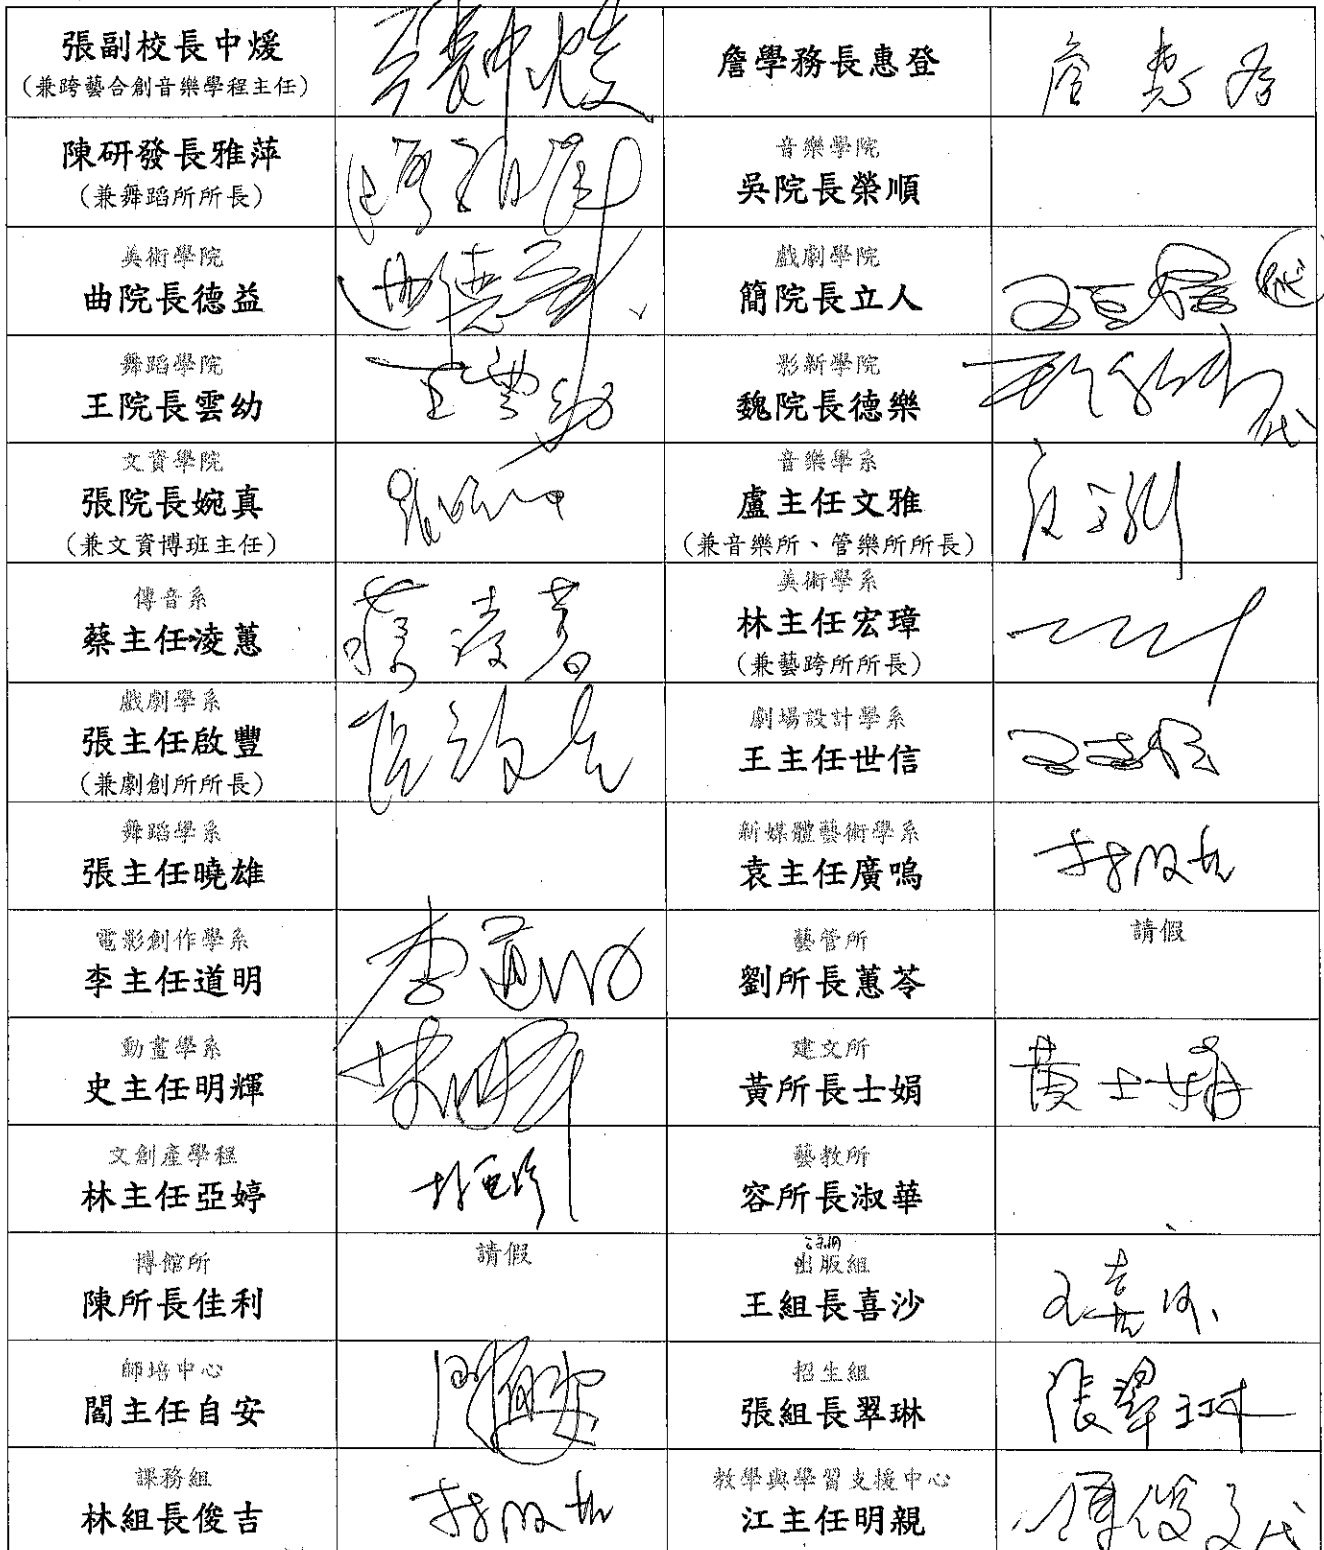 張副校長中煖
(兼跨藝合創音樂學程主任)
張中煖
詹學務長惠登
詹惠登
陳研發長雅萍
(兼舞蹈所所長)
陳雅萍
音樂學院
吳院長榮順
美術學院
曲院長德益
曲德益
戲劇學院
簡院長立人
王世信 代
舞蹈學院
王院長雲幼
王雲幼
影新學院
魏院長德樂
代
文資學院
張院長婉真
(兼文資博班主任)
音樂學系
盧主任文雅
(兼音樂所、管樂所所長)
傳音系
蔡主任凌蕙
蔡凌蕙
美術學系
林主任宏璋
(兼藝跨所所長)
戲劇學系
張主任啟豐
(兼劇創所所長)
劇場設計學系
王主任世信
王世信
舞蹈學系
張主任曉雄
新媒體藝術學系
袁主任廣鳴
林俊吉
電影創作學系
李主任道明
李道明
藝管所
劉所長蕙苓
請假
動畫學系
史主任明輝
史明輝
建文所
黃所長士娟
黃士娟
文創產學程
林主任亞婷
林亞婷
藝教所
容所長淑華
博館所
陳所長佳利
請假
出版組
王組長喜沙
王喜沙
師培中心
閻主任自安
閻自安
招生組
張組長翠琳
張翠琳
課務組
林組長俊吉
林俊吉
教學與學習支援中心
江主任明親
代